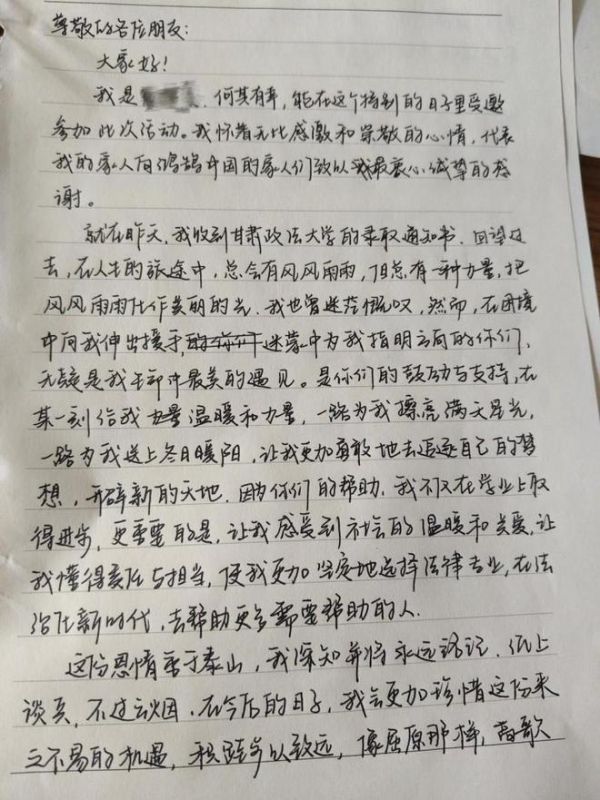 尊敬的各位朋友：
大家好！
我是 何其有幸，能在这个特别的日子里受邀
参加此次活动。我怀着无比感激和崇敬的心情，代表
我的家人向 中国的家人们致以 最衷心诚挚的感
谢。
就在昨天，我收到甘肃政法大学的录取通知书。回望过
去，在人生的旅途中，总会有风风雨雨，但总有一种力量，把
风风雨雨化作美丽的光。我也曾迷茫慨叹，然而，在困境
中向我伸出援手， 迷蒙中为我指明方向的你们，
无疑是我生命中最美的遇见。是你们的鼓励与支持，在
某一刻给我 温暖和力量，一路为我擦亮满天星光，
一路为我送上冬日暖阳，让我更加勇敢地去追逐自己的梦
想，开辟新的天地。因为你们的帮助，我不仅在学业上取
得进步，更重要的是，让我感受到社会的温暖和关爱，让
我懂得责任与担当，使我更加坚定地选择法律专业，在法
治化新时代，去帮助更多需要帮助的人。
这份恩情重于泰山，我深知并将永远铭记。纸上
谈兵，不过云烟。在今后的日子，我会更加珍惜这份来
之不易的机遇，积跬步以致远，像屈原那样，高歌